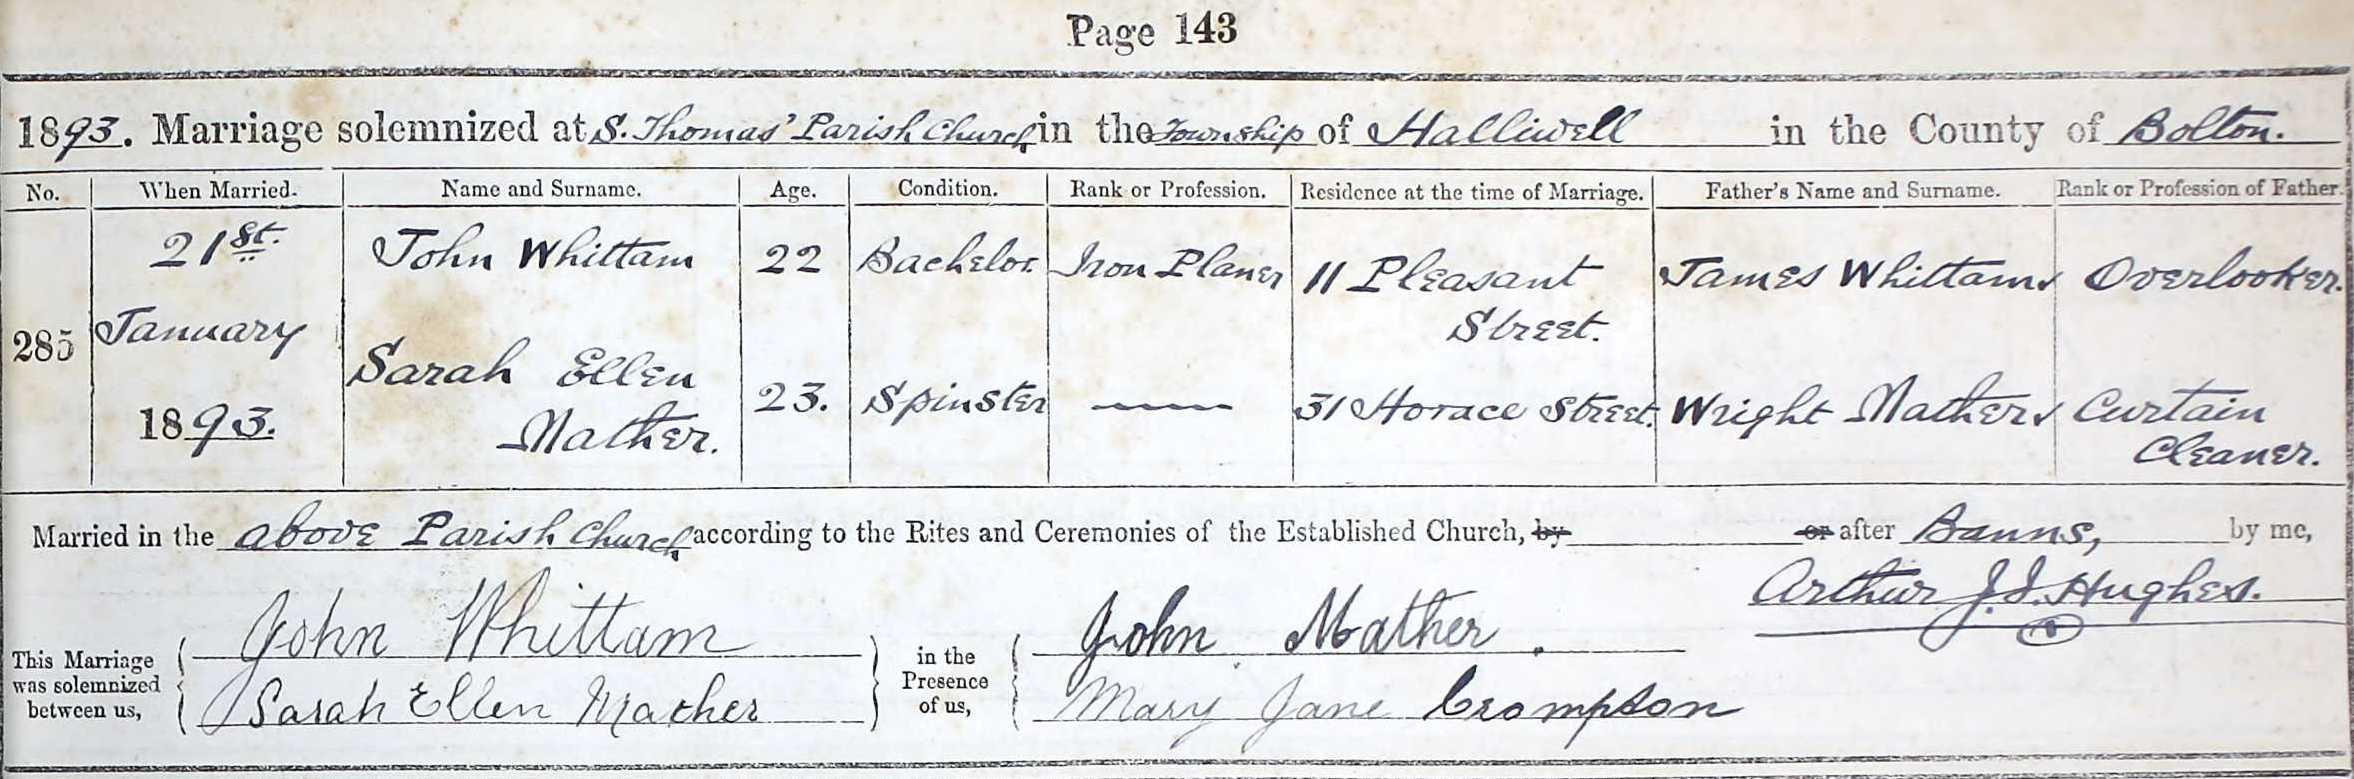 Page 143
1893. Marriage solemnized at S. Thomas' Parish Church in the Township of Halliwell in the County of Bolton.
No. When Married. Name and Surname. Age. Condition. Rank or Profession. Residence at the time of Marriage. Father's Name and Surname. Rank or Profession of Father.
285
21st.
January
1893.
John Whittam 22 Bachelor. Iron Planer 11 Pleasant Street. James Whittam Overlooker.
Sarah Ellen Mather. 23. Spinster —— 31 Horace Street. Wright Mather Curtain Cleaner.
Married in the above Parish Church according to the Rites and Ceremonies of the Established Church, by or after Banns, by me,
Arthur J. I. Hughes.
This Marriage was solemnized between us,
John Whittam
Sarah Ellen Mather
in the Presence of us,
John Mather.
Mary Jane Crompton